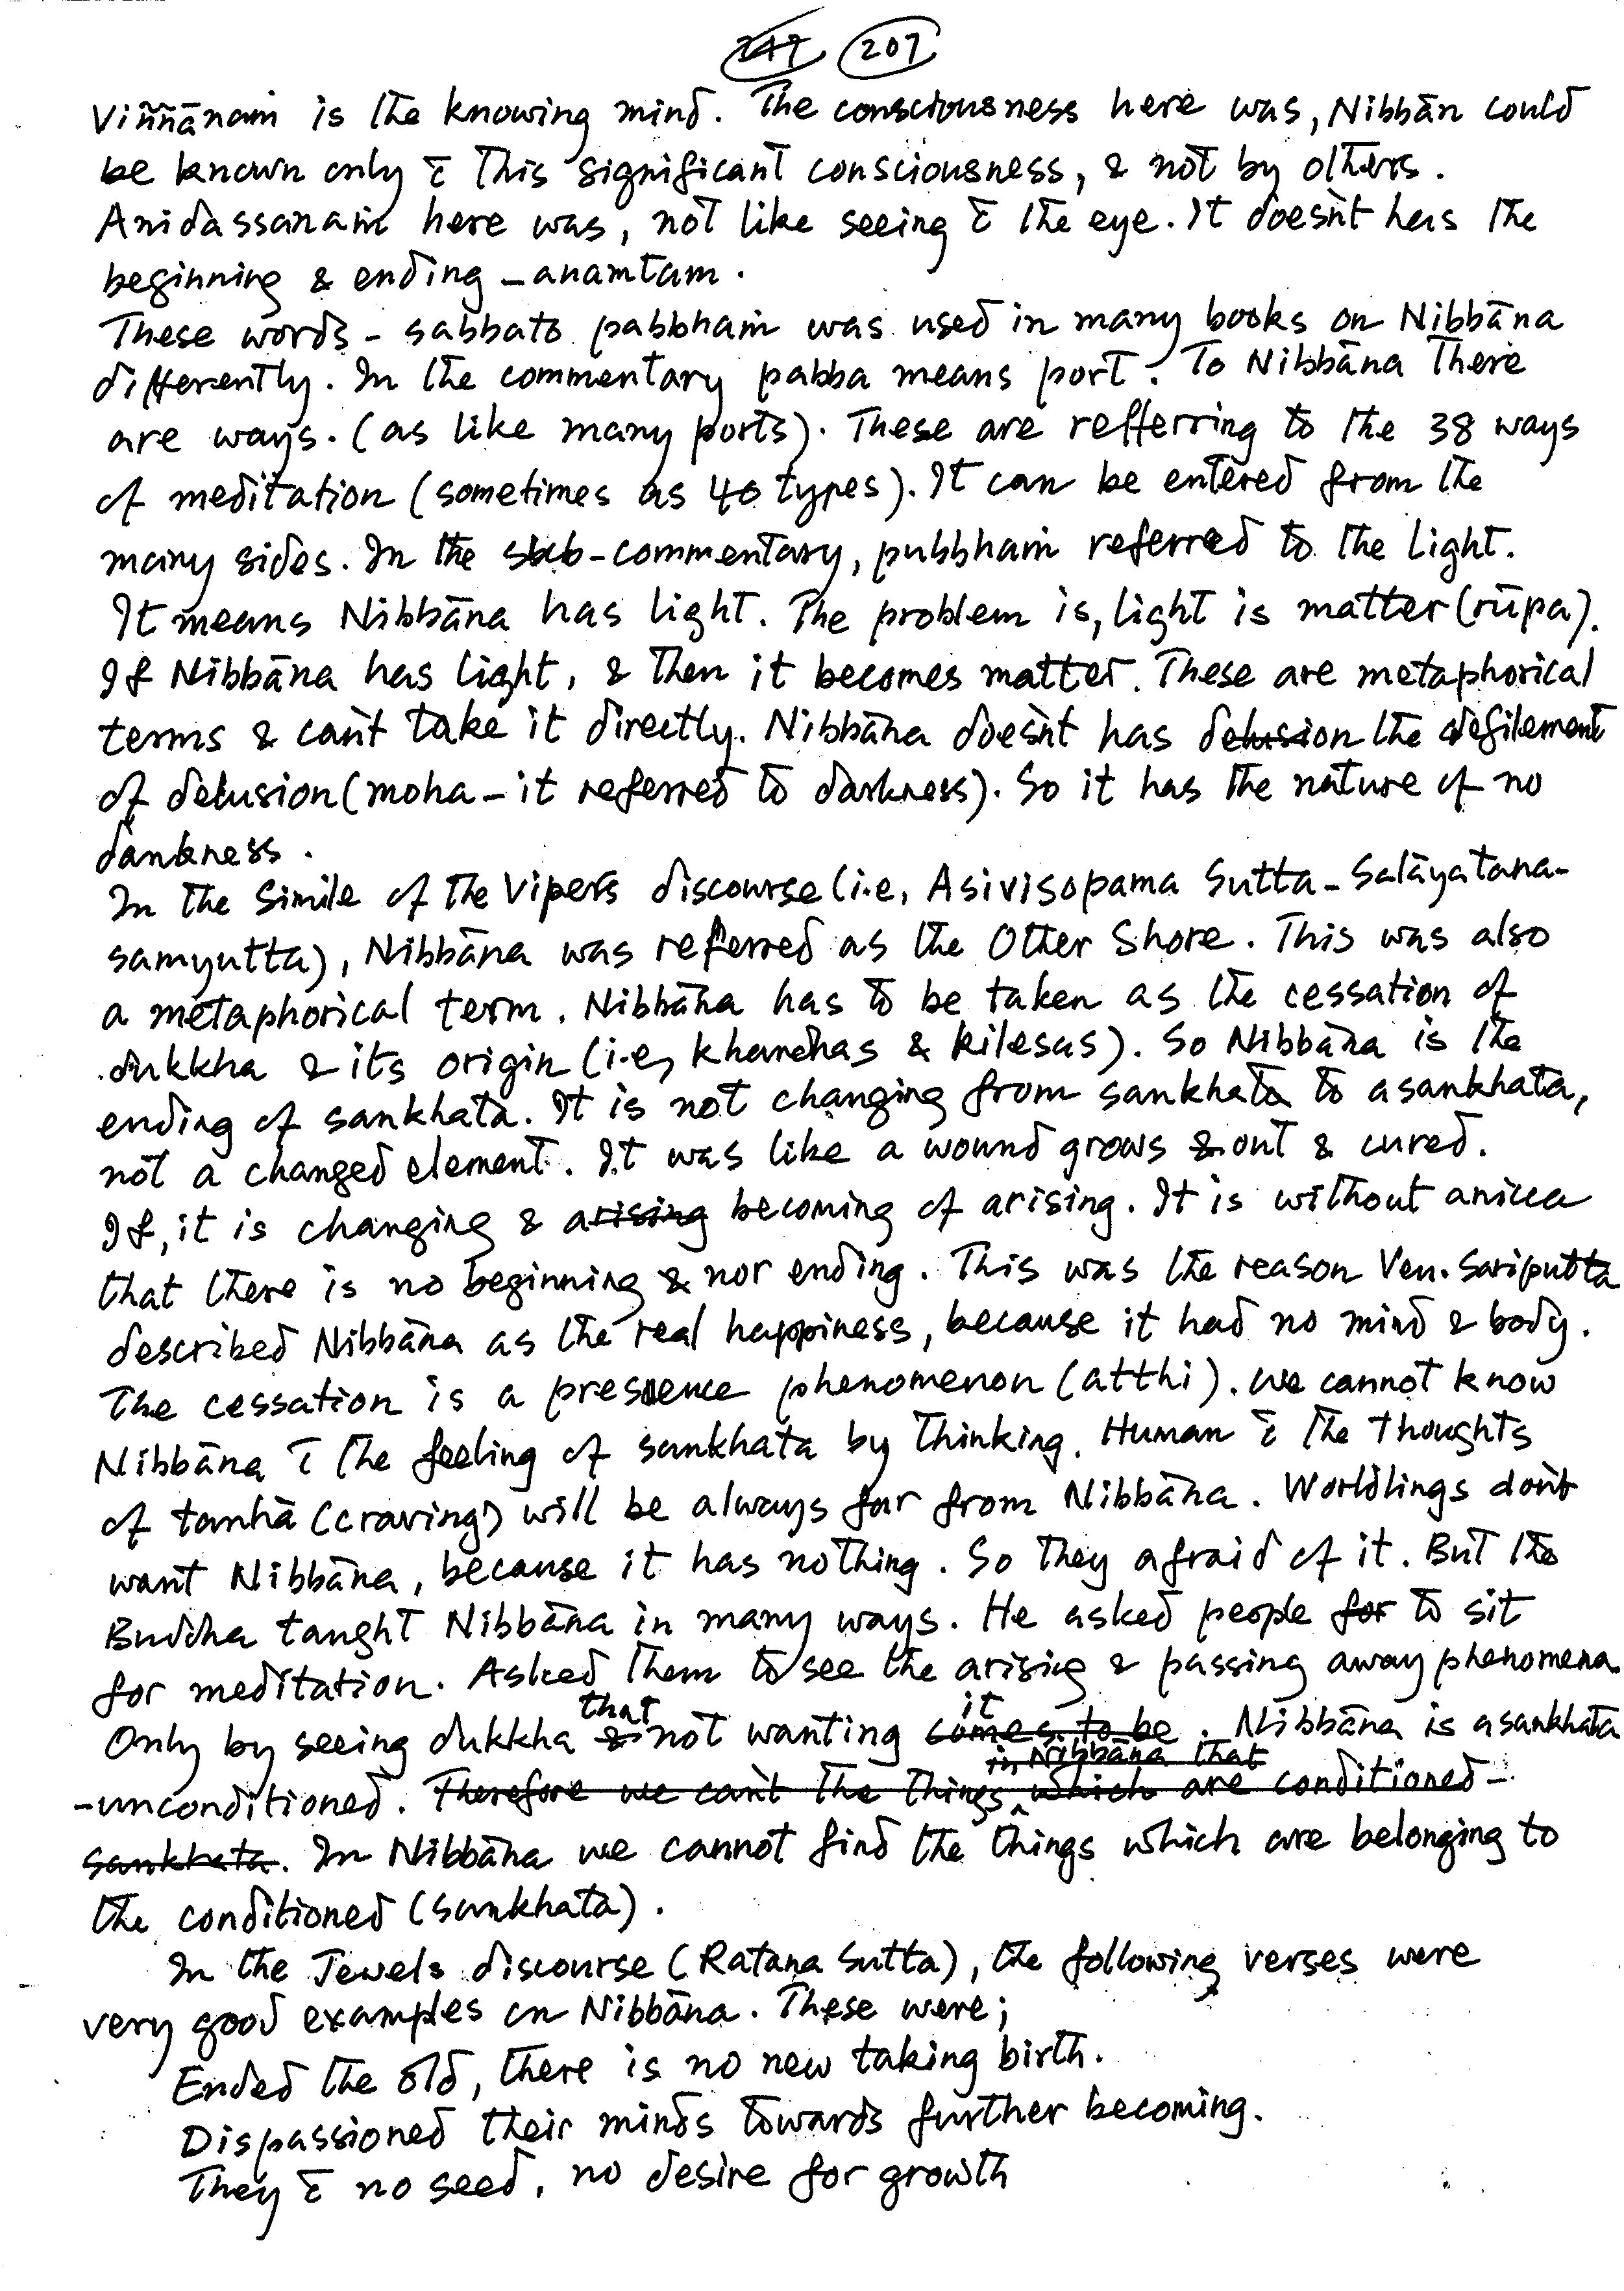 247 207
Viññānaṁ is the knowing mind. The consciousness here was, Nibbān could
be known only c̄ this significant consciousness, & not by others.
Anidassanaṁ here was, not like seeing c̄ the eye. It doesn't has the
beginning & ending – anaṁtam.
These words – sabbato pabbhaṁ was used in many books on Nibbāna
differently. In the commentary pabba means port. To Nibbāna there
are ways. (as like many ports). These are refferring to the 38 ways
of meditation (sometimes as 40 types). It can be entered from the
many sides. In the sub-commentary, pubbhaṁ referred to the light.
It means Nibbāna has light. The problem is, light is matter (rūpa).
If Nibbāna has light, & then it becomes matter. These are metaphorical
terms & can't take it directly. Nibbāna doesn't has delusion the defilement
of delusion (moha – it referred to darkness). So it has the nature of no
darkness.
In the Simile of the Vipers discourse (i.e, Asivisopama Sutta – Salāyatana-
samyutta), Nibbāna was referred as the Other Shore. This was also
a metaphorical term. Nibbāna has to be taken as the cessation of
dukkha & its origin (i.e, khandhas & kilesas). So Nibbāna is the
ending of sankhata. It is not changing from sankhata to asankhata,
not a changed element. It was like a wound grows & out & cured.
If, it is changing & arising becoming of arising. It is without anicca
that there is no beginning & nor ending. This was the reason Ven. Sariputta
described Nibbāna as the real happiness, because it had no mind & body.
The cessation is a presence phenomenon (atthi). We cannot know
Nibbāna c̄ the feeling of sankhata by thinking. Human c̄ the thoughts
of tanhā (craving) will be always far from Nibbāna. Worldlings don't
want Nibbāna, because it has nothing. So they afraid of it. But the
Buddha taught Nibbāna in many ways. He asked people for to sit
for meditation. Asked them to see the arising & passing away phenomena.
Only by seeing dukkha & that not wanting comes to be it. Nibbāna is asankhata
-unconditioned. Therefore we can't the things in Nibbāna that which are conditioned –
sankhata. In Nibbāna we cannot find the things which are belonging to
the conditioned (sankhata).
In the Jewels discourse (Ratana Sutta), the following verses were
very good examples on Nibbāna. These were;
Ended the old, there is no new taking birth.
Dispassioned their minds towards further becoming.
They c̄ no seed, no desire for growth